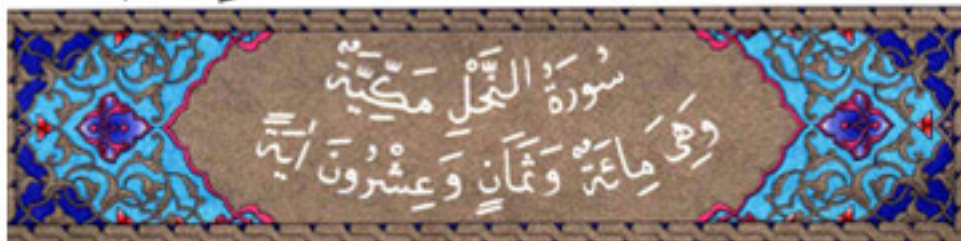 سُورَةُ النَّحْلِ مَكِّيَّةٌ
وَهِىَ مِائَةٌ وَثَمَانٍ وَعِشْرُونَ اٰيَةً